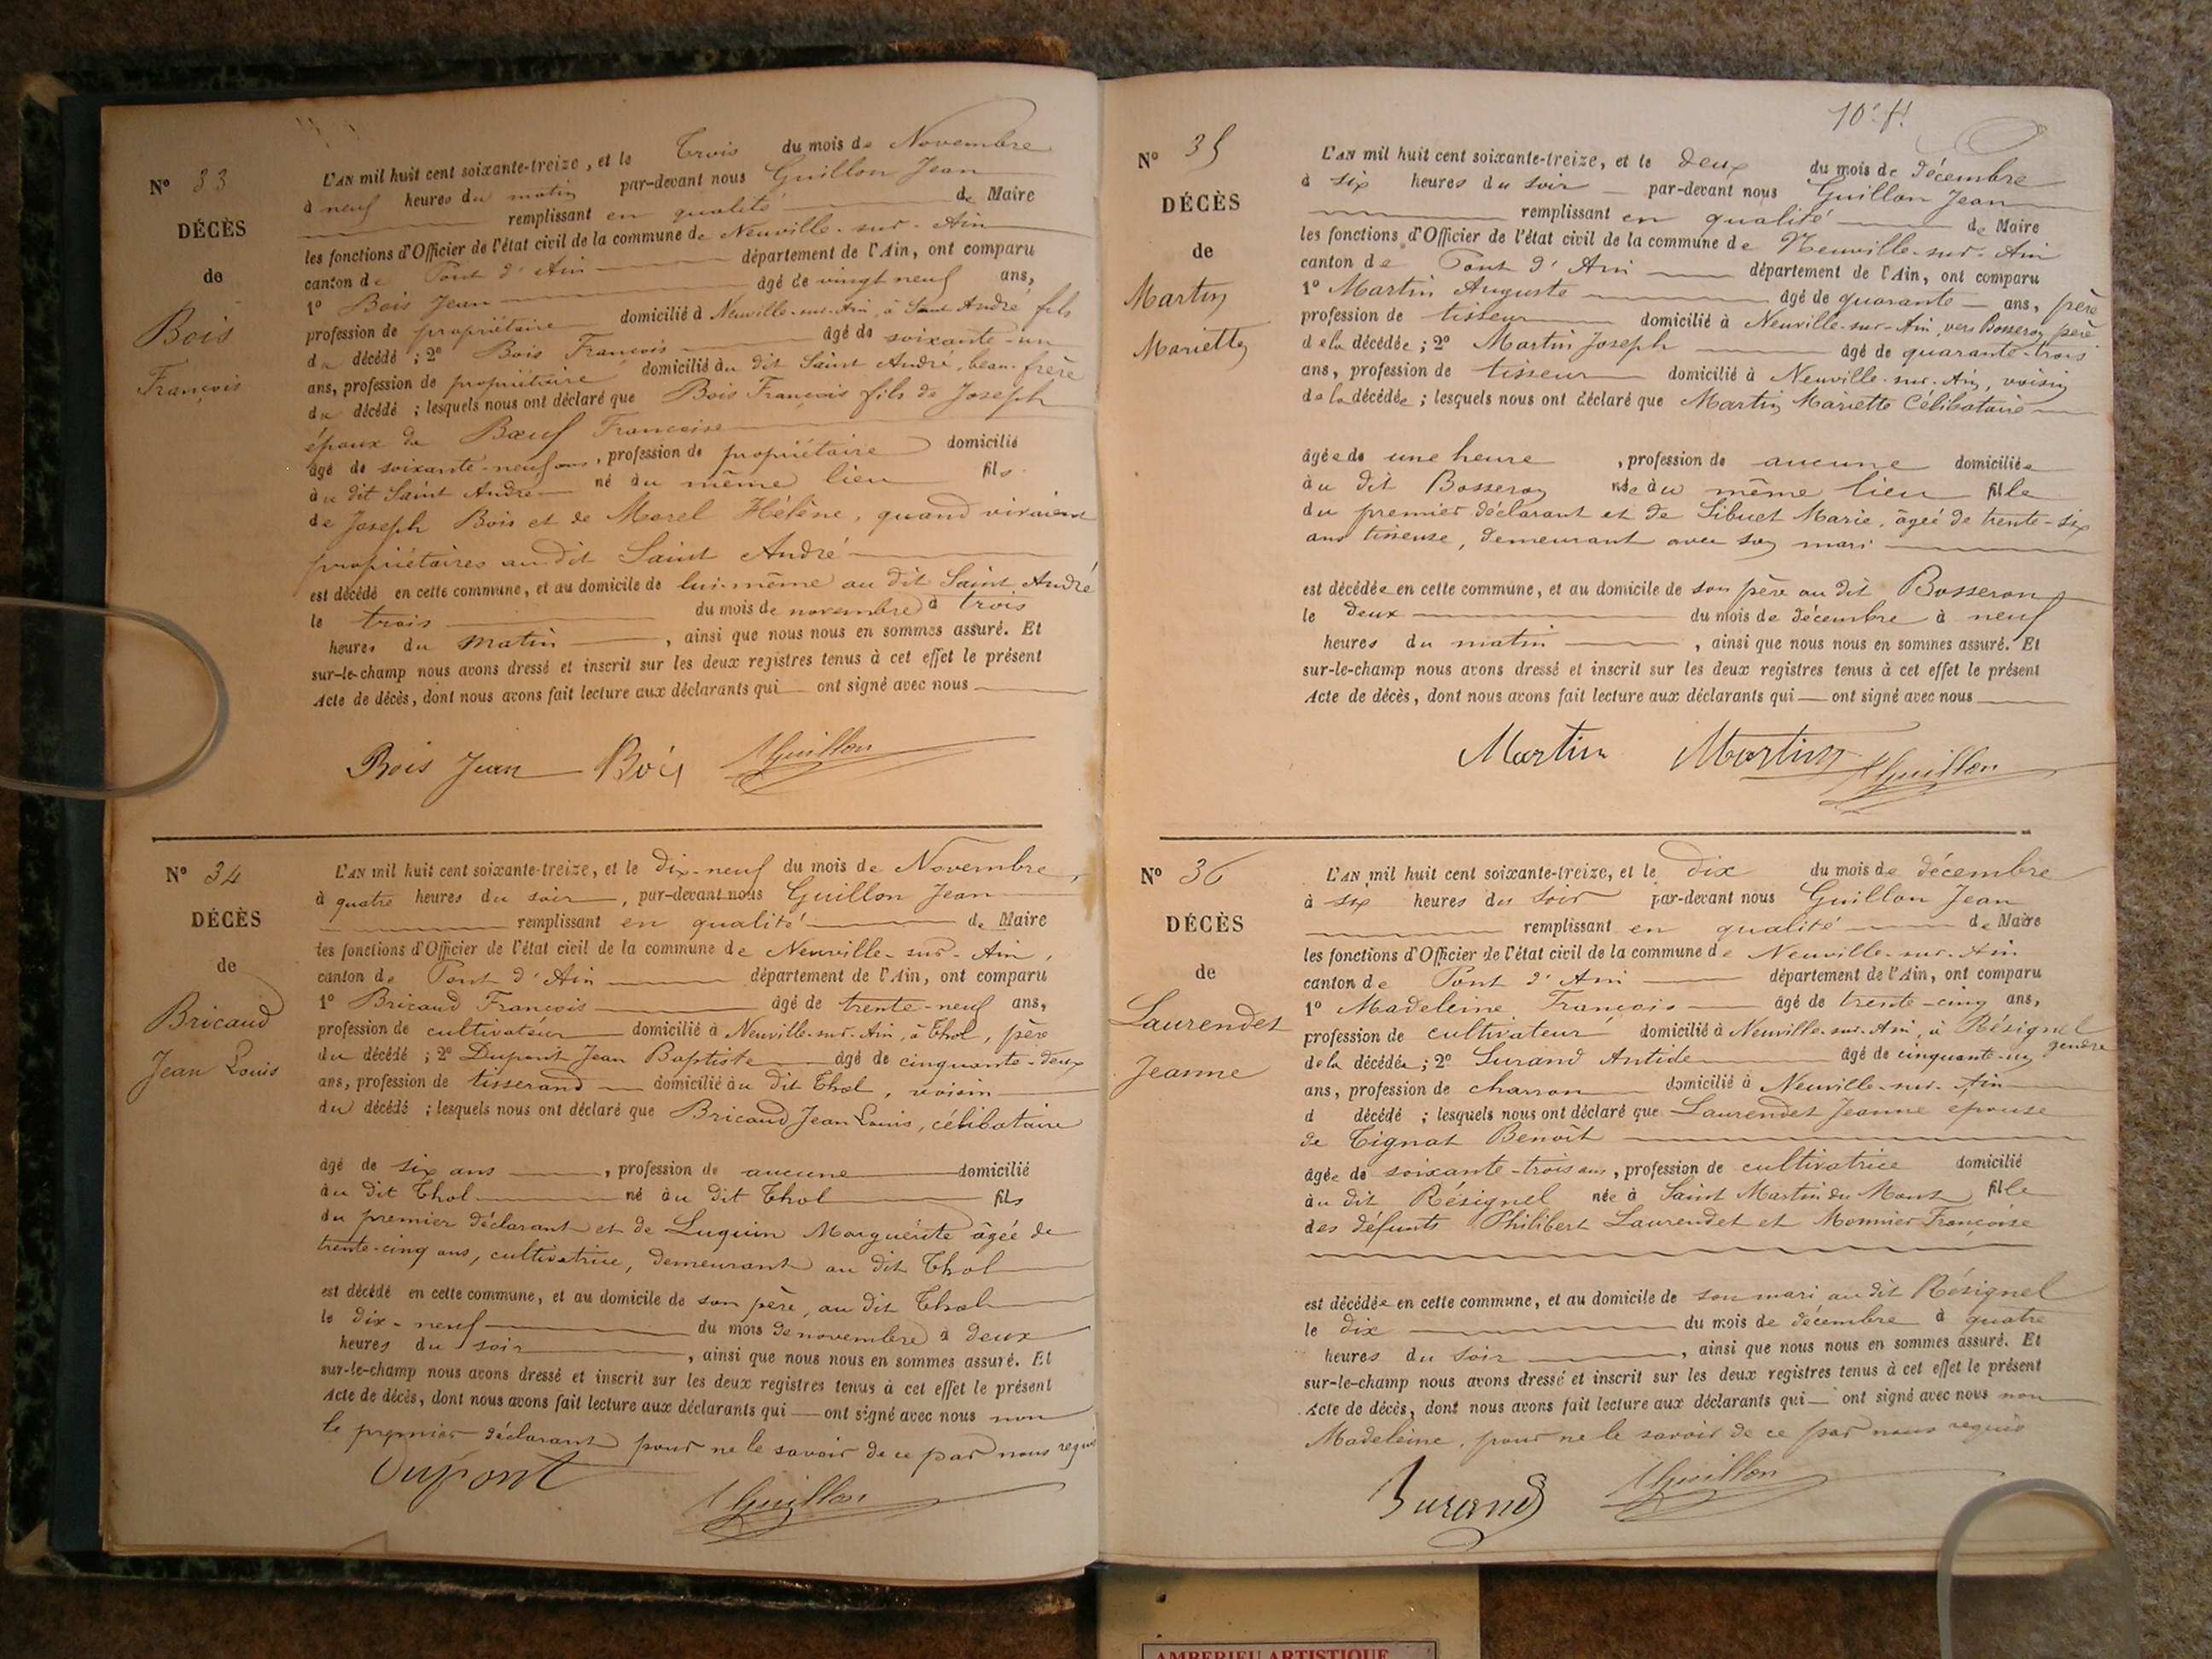 N° 33
DÉCÈS
de
Bois
François
L'AN mil huit cent soixante-treize, et le Trois du mois de Novembre
à neuf heures du matin par-devant nous Guillon Jean
remplissant en qualité de Maire
les fonctions d'Officier de l'état civil de la commune de Neuville-sur-Ain
canton de Pont d'Ain département de l'Ain, ont comparu
1° Bois Jean âgé de vingt neuf ans,
profession de propriétaire domicilié à Neuville-sur-Ain, à Saint André fils
du décédé ; 2° Bois François âgé de soixante-un
ans, profession de propriétaire domicilié au dit Saint André, beau-frère
du décédé ; lesquels nous ont déclaré que Bois François fils de Joseph
époux de Bœuf Francoise
âgé de soixante-neuf ans, profession de propriétaire domicilié
au dit Saint André né au même lieu fils
de Joseph Bois et de Morel Hélène, quand vivaient
propriétaires au dit Saint André
est décédé en cette commune, et au domicile de lui-même au dit Saint André
le trois du mois de novembre à trois
heures du matin, ainsi que nous nous en sommes assuré. Et
sur-le-champ nous avons dressé et inscrit sur les deux registres tenus à cet effet le présent
Acte de décès, dont nous avons fait lecture aux déclarants qui ont signé avec nous
Bois Jean Bois JGuillon
N° 34
DÉCÈS
de
Bricaud
Jean Louis
L'AN mil huit cent soixante-treize, et le dix-neuf du mois de Novembre,
à quatre heures du soir, par-devant nous Guillon Jean
remplissant en qualité de Maire
les fonctions d'Officier de l'état civil de la commune de Neuville-sur-Ain,
canton de Pont d'Ain département de l'Ain, ont comparu
1° Bricaud François âgé de trente-neuf ans,
profession de cultivateur domicilié à Neuville-sur-Ain, à Thol, père
du décédé ; 2° Dupont Jean Baptiste âgé de cinquante-deux
ans, profession de tisserand domicilié au dit Thol, voisin
du décédé ; lesquels nous ont déclaré que Bricaud Jean Louis, célibataire
âgé de six ans, profession de aucune domicilié
au dit Thol né au dit Thol fils
du premier déclarant et de Luquin Marguérite âgée de
trente-cinq ans, cultivatrice, demeurant au dit Thol
est décédé en cette commune, et au domicile de son père, au dit Thol
le dix-neuf du mois de novembre à deux
heures du soir, ainsi que nous nous en sommes assuré. Et
sur-le-champ nous avons dressé et inscrit sur les deux registres tenus à cet effet le présent
Acte de décès, dont nous avons fait lecture aux déclarants qui ont signé avec nous non
le premier déclarant pour ne le savoir de ce par nous requis
Dupont JGuillon
N° 35
DÉCÈS
de
Martin
Mariette
L'AN mil huit cent soixante-treize, et le deux du mois de Décembre
à six heures du soir par-devant nous Guillon Jean
remplissant en qualité de Maire
les fonctions d'Officier de l'état civil de la commune de Neuville-sur-Ain
canton de Pont d'Ain département de l'Ain, ont comparu
1° Martin Auguste âgé de quarante ans, père
profession de tisseur domicilié à Neuville-sur-Ain, vers Bosseron père
de la décédée ; 2° Martin Joseph âgé de quarante-trois
ans, profession de tisseur domicilié à Neuville-sur-Ain, voisin
de la décédée ; lesquels nous ont déclaré que Martin Mariette Célibataire
âgée de une heure, profession de aucune domiciliée
au dit Bosseron née au même lieu fille
du premier déclarant et de Sibuet Marie, âgée de trente-six
ans tisseuse, demeurant avec son mari
est décédée en cette commune, et au domicile de son père au dit Bosseron
le deux du mois de décembre à neuf
heures du matin, ainsi que nous nous en sommes assuré. Et
sur-le-champ nous avons dressé et inscrit sur les deux registres tenus à cet effet le présent
Acte de décès, dont nous avons fait lecture aux déclarants qui ont signé avec nous
Martin Martin JGuillon
N° 36
DÉCÈS
de
Laurendet
Jeanne
L'AN mil huit cent soixante-treize, et le dix du mois de décembre
à six heures du soir par-devant nous Guillon Jean
remplissant en qualité de Maire
les fonctions d'Officier de l'état civil de la commune de Neuville-sur-Ain
canton de Pont d'Ain département de l'Ain, ont comparu
1° Madeleine François âgé de trente-cinq ans,
profession de cultivateur domicilié à Neuville-sur-Ain, à Résignel gendre
de la décédée ; 2° Durand Antide âgé de cinquante-un
ans, profession de charron domicilié à Neuville-sur-Ain
d décédé ; lesquels nous ont déclaré que Laurendet Jeanne épouse
de Tignat Benoît
âgée de soixante-trois ans, profession de cultivatrice domicilié
au dit Résignel née à Saint Martin du Mont fille
des défunts Philibert Laurendet et Monnier Françoise
est décédée en cette commune, et au domicile de son mari au dit Résignel
le dix du mois de décembre à quatre
heures du soir, ainsi que nous nous en sommes assuré. Et
sur-le-champ nous avons dressé et inscrit sur les deux registres tenus à cet effet le présent
Acte de décès, dont nous avons fait lecture aux déclarants qui ont signé avec nous non
Madeleine, pour ne le savoir de ce par nous requis
Durand JGuillon
AMBERIEU ARTISTIQUE